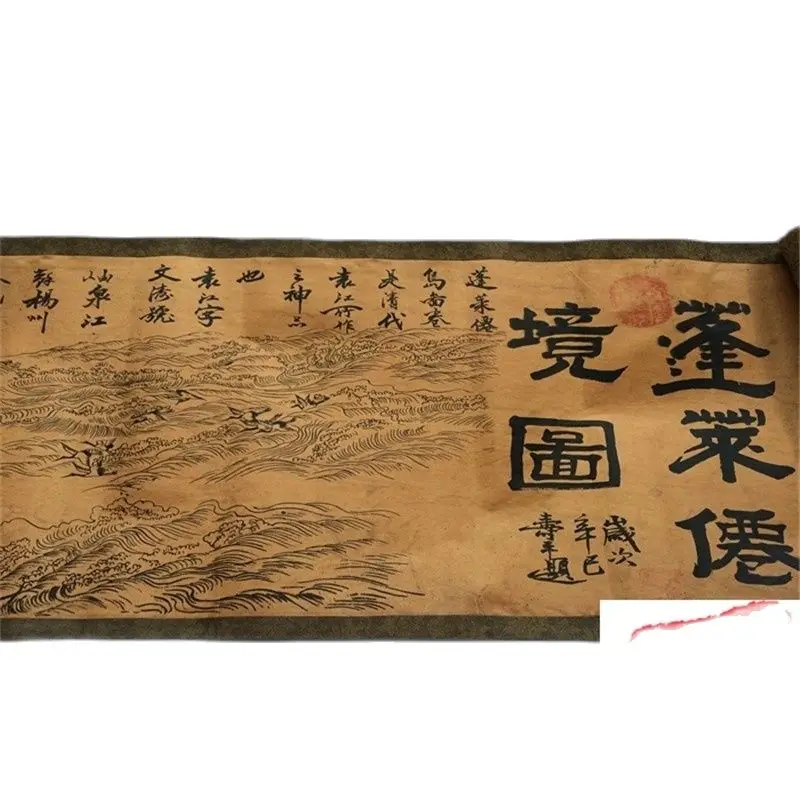 蓬萊僊
境圖
歲次
辛巳
壽平題
蓬萊僊
島畵卷
是清代
袁江所作
之神品
也
袁江字
文濤號
岫泉江
蘇楊州